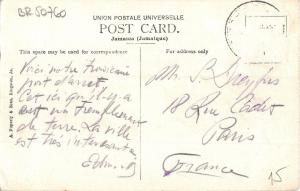 BR50760
UNION POSTALE UNIVERSELLE
POST CARD.
Jamaica (Jamaïque)
This space may be used for correspondence
For address only
Voici notre troisième
port d'arrêt
C'est ici qu'il y a
eut un tremblement
de terre. La ville
est très intéressante
M. S. Dreyfus
18 Rue
Paris
France
15